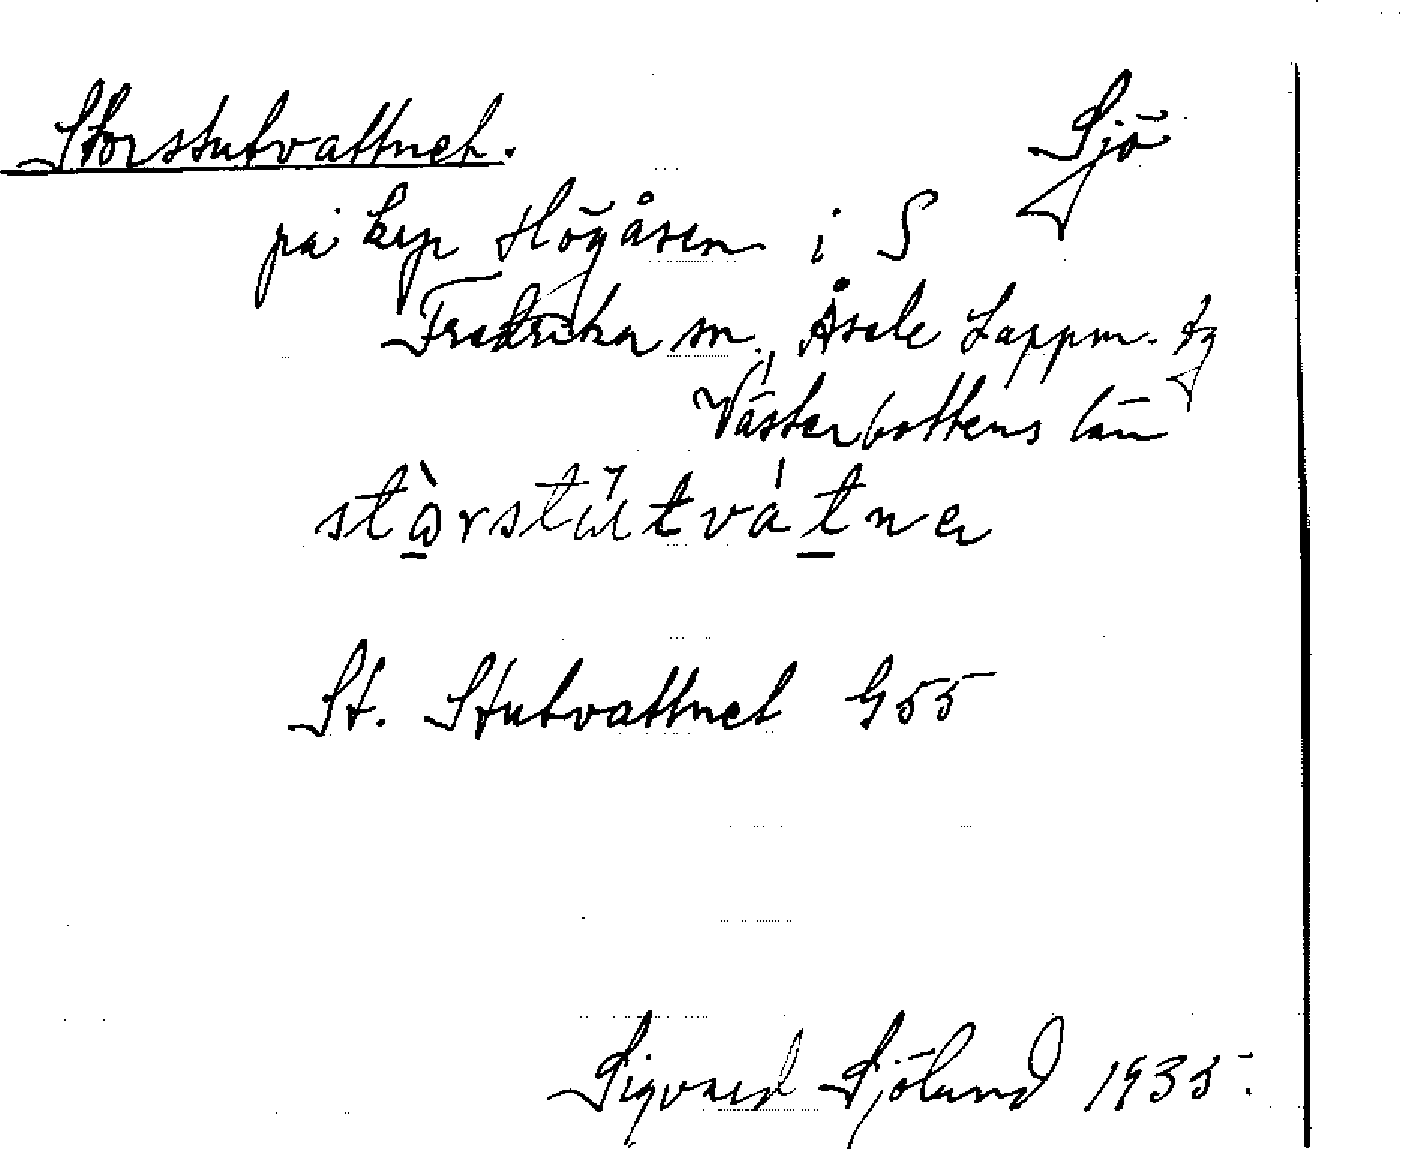 Storstutvattnet. Sjö
på krp Högåsen i S
Fredrika sn., Åsele Lappm. tg
Västerbottens län
stòrstutvátner
St. Stutvattnet G 55
Sigvard Sjölund 1935.